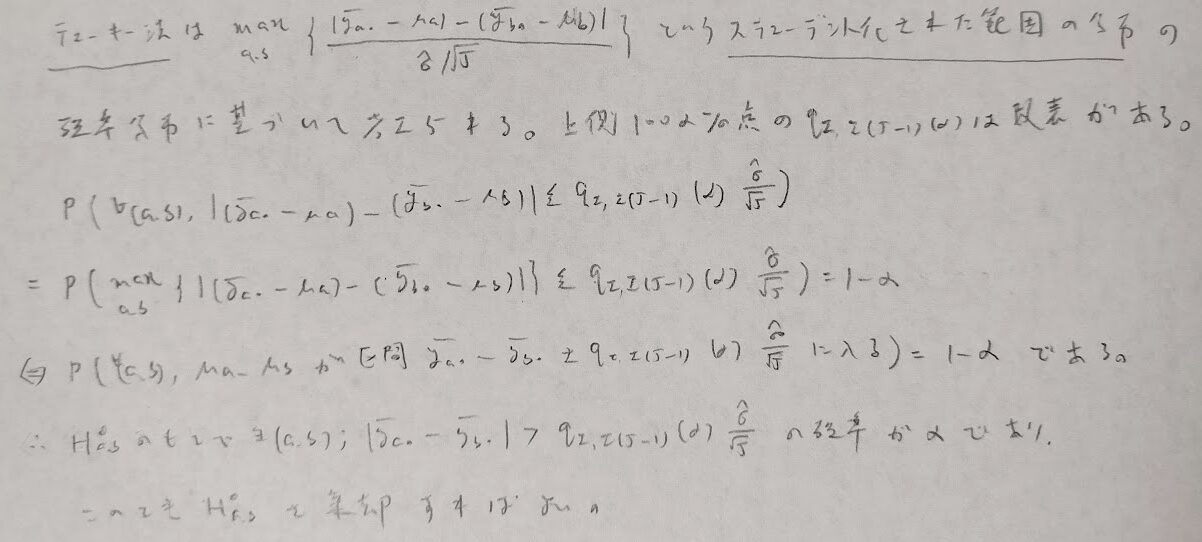 テューキー法は max_{a,b} { |(ȳ_{a・} - μ_a) - (ȳ_{b・} - μ_b)| / (σ̂/√J) } というステューデント化された範囲の分布の
確率分布に基づいて考えられる。上側100α%点の q_{I, I(J-1)}(α) は数表がある。
P( ∀(a,b), |(ȳ_{a・} - μ_a) - (ȳ_{b・} - μ_b)| ≦ q_{I, I(J-1)}(α) σ̂/√J )
= P( max_{a,b} { |(ȳ_{a・} - μ_a) - (ȳ_{b・} - μ_b)| } ≦ q_{I, I(J-1)}(α) σ̂/√J ) = 1-α
⇔ P( ∀(a,b), μ_a - μ_b が 区間 ȳ_{a・} - ȳ_{b・} ± q_{I, I(J-1)}(α) σ̂/√J に入る ) = 1-α である。
∴ H^0_{ab} のもとで ∃(a,b); |ȳ_{a・} - ȳ_{b・}| > q_{I, I(J-1)}(α) σ̂/√J の確率が α であり、
このとき H^0_{ab} を棄却すればよい。